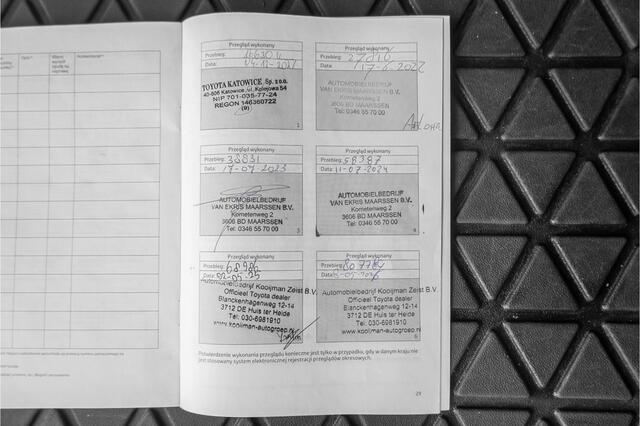 Przegląd wykonany
Przebieg:
Data: 04-12-2021
TOYOTA KATOWICE Sp. z o.o.
40-506 Katowice, ul. Kolejowa 54
NIP 701-035-77-24
REGON 146360722
(9)
1
Przegląd wykonany
Przebieg:
Data: 17-6-2022
AUTOMOBIELBEDRIJF
VAN EKRIS MAARSSEN B.V.
Kometenweg 2
3606 BD MAARSSEN
Tel: 0346 55 70 00
Przegląd wykonany
Przebieg: 38831
Data: 17-07-2023
AUTOMOBIELBEDRIJF
VAN EKRIS MAARSSEN B.V.
Kometenweg 2
3606 BD MAARSSEN
Tel: 0346 55 70 00
3
Przegląd wykonany
Przebieg: 58387
Data: 11-07-2024
AUTOMOBIELBEDRIJF
VAN EKRIS MAARSSEN B.V.
Kometenweg 2
3606 BD MAARSSEN
Tel: 0346 55 70 00
4
Przegląd wykonany
Przebieg:
Data: 02-05-25
Automobielbedrijf Kooijman Zeist B.V.
Officieel Toyota dealer
Blanckenhagenweg 12-14
3712 DE Huis ter Heide
Tel: 030-6981910
www.kooijman-autogroep.nl
Przegląd wykonany
Przebieg:
Data:
Automobielbedrijf Kooijman Zeist B.V.
Officieel Toyota dealer
Blanckenhagenweg 12-14
3712 DE Huis ter Heide
Tel: 030-6981910
www.kooijman-autogroep.nl
6
Potwierdzenie wykonania przeglądu konieczne jest tylko w przypadku, gdy w danym kraju nie
jest stosowany system elektronicznej rejestracji przeglądów okresowych.
29